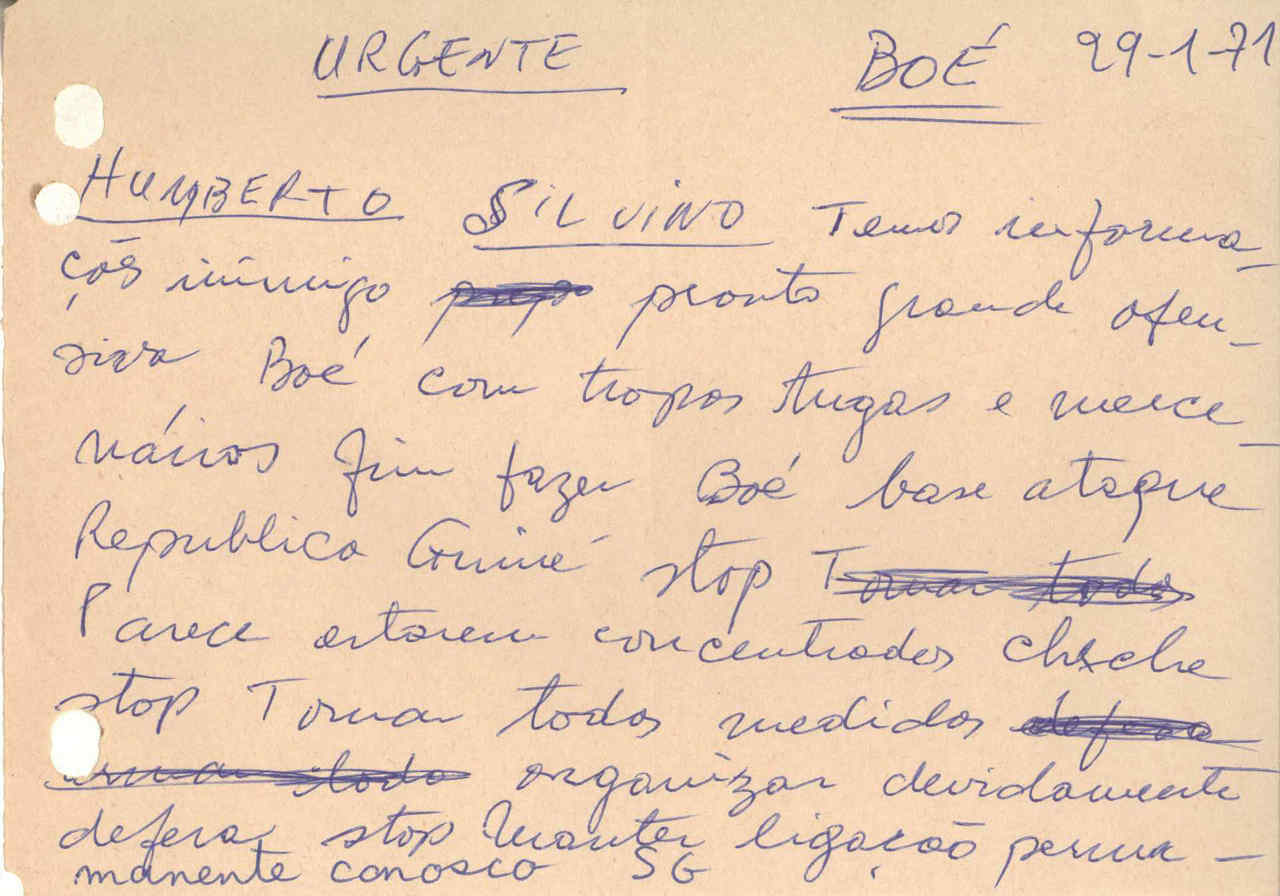 URGENTE BOÉ 29-1-71
HUMBERTO SILVINO Temos informa-
ções inimigo pronto grande ofen-
siva Boé com tropas tugas e merce-
nários fim fazer Boé base ataque
Republica Guiné stop Tomar todas
Parece estarem concentrados cheche
stop Tomar todas medidas defesa
armar todo organizar devidamente
defesa stop Manter ligação perma-
manente conosco SG